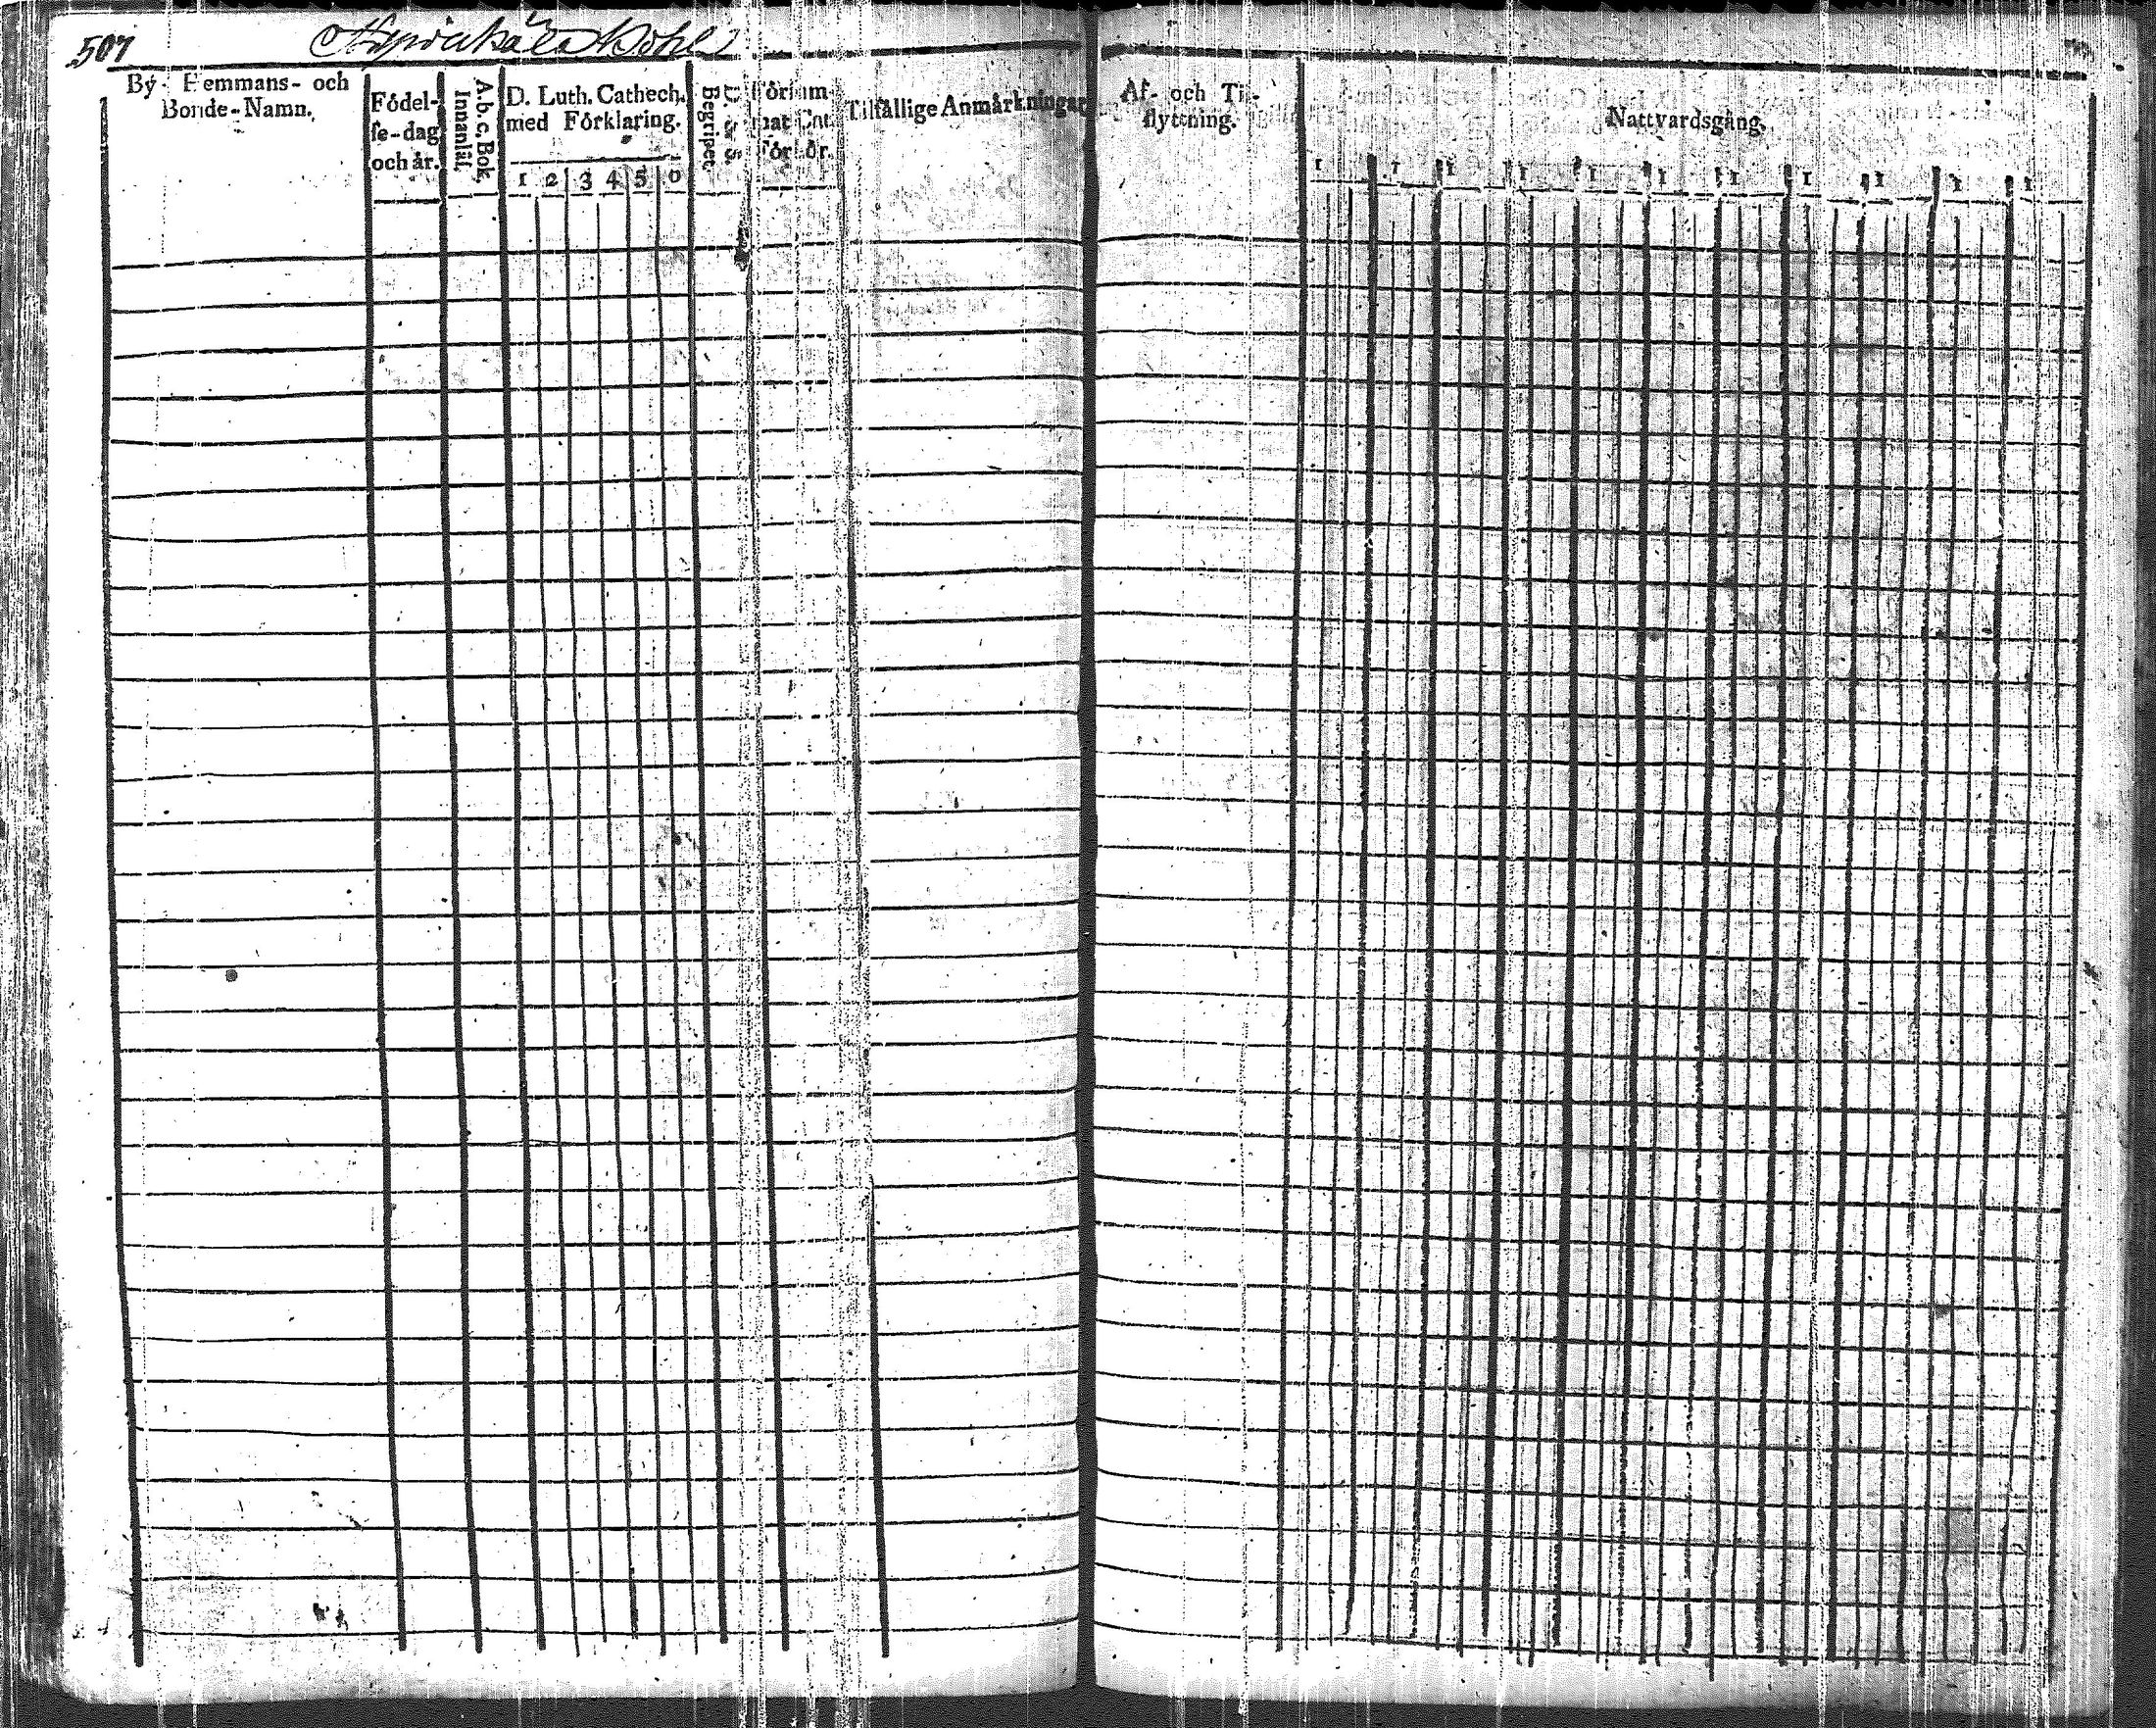 507
By- Hemmans- och
Bonde-Namn.
Födel-
se-dag
och år.
A.b.c. Bok.
Innanläs.
D. Luth. Cathech.
med Förklaring.
1 2 3 4 5 6
Begripet.
Tilfällige Anmärkningar
Af- och Til-
flyttning.
Nattvardsgång.
1 1 1 1 1 1 1 1 1 1 1